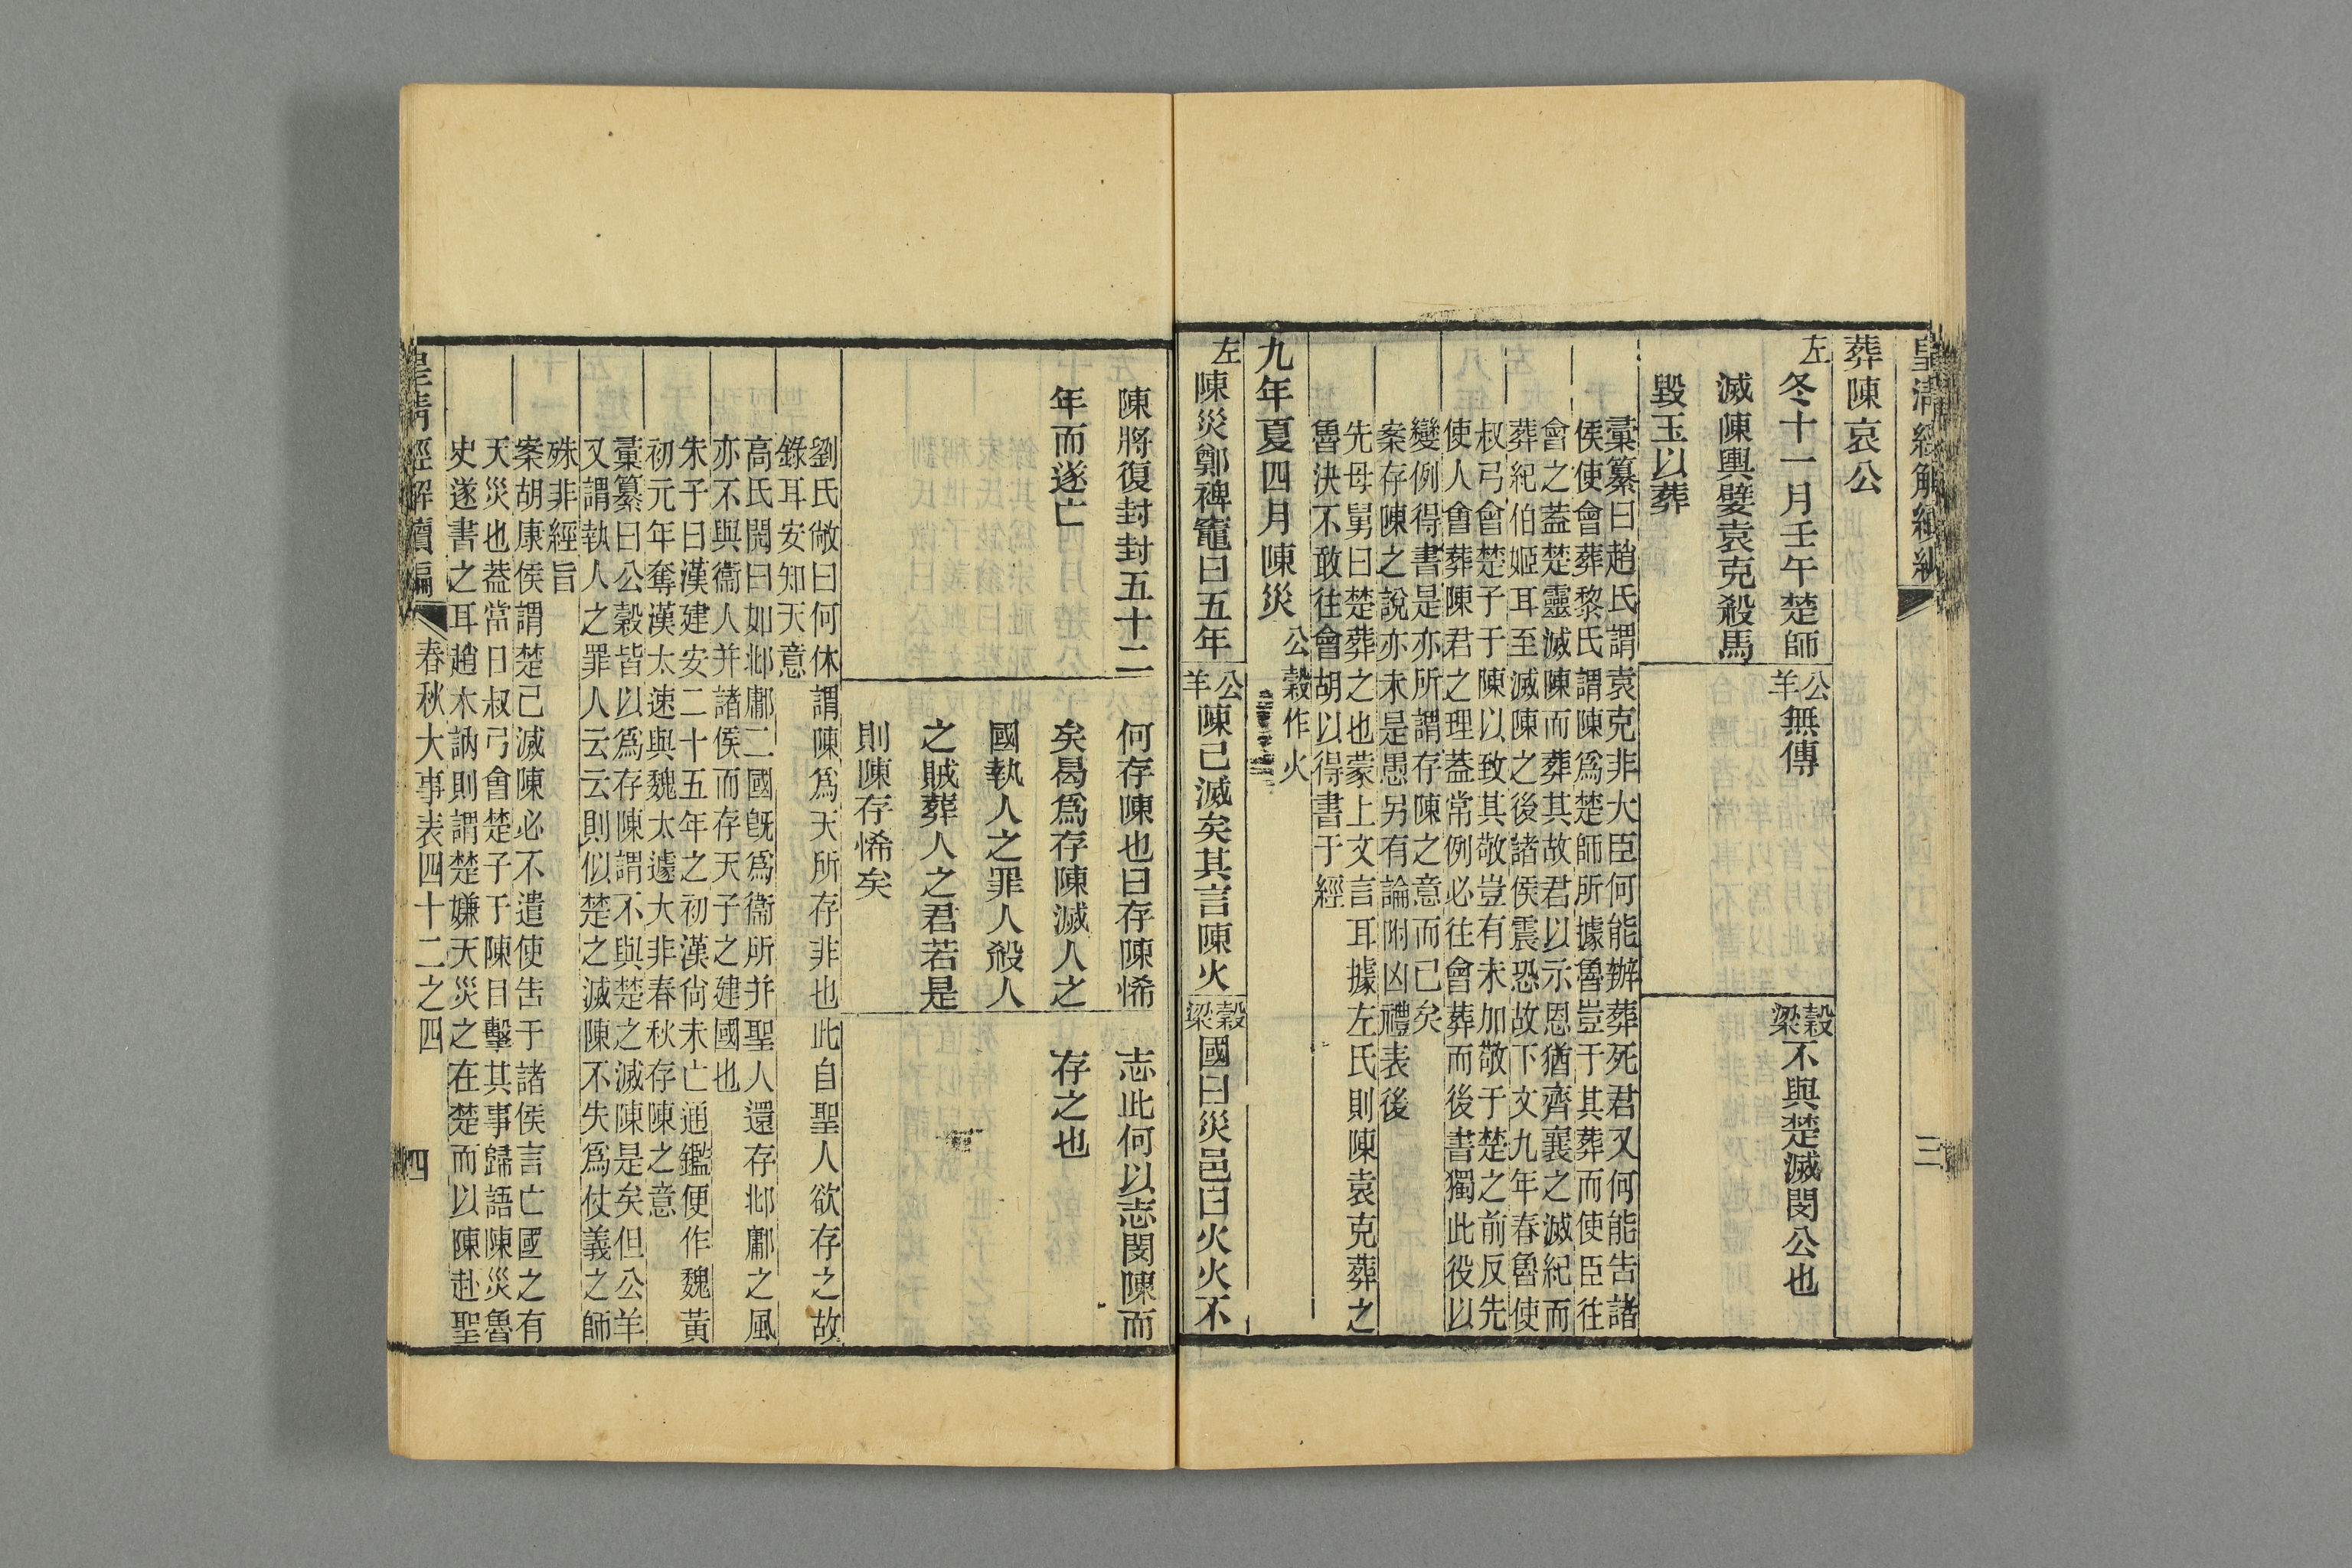 皇清經解續編
三
葬陳哀公
左冬十一月壬午楚師
滅陳輿嬖袁克殺馬
毀玉以葬
公羊無傳
穀梁不與楚滅閔公也
彙纂曰趙氏謂袁克非大臣何能辦葬死君又何能吿諸
侯使會葬黎氏謂陳爲楚師所據魯豈于其葬而使臣往
會之葢楚靈滅陳而葬其故君以示恩猶齊襄之滅紀而
葬紀伯姬耳至滅陳之後諸侯震恐故下文九年春魯使
叔弓會楚子于陳以致其敬豈有未加敬于楚之前反先
使人會葬陳君之理葢常例必往會葬而後書獨此役以
變例得書是亦所謂存陳之意而已矣
案存陳之說亦未是愚另有論附凶禮表後
先母舅曰楚葬之也蒙上文言耳據左氏則陳袁克葬之
魯決不敢往會胡以得書于經
九年夏四月陳災公穀作火
左陳災鄭裨竈曰五年
公羊陳已滅矣其言陳火
穀梁國曰災邑曰火火不
陳將復封封五十二
年而遂亡
何存陳也曰存陳悕
矣曷爲存陳滅人之
國執人之罪人殺人
之賊葬人之君若是
則陳存悕矣
志此何以志閔陳而
存之也
劉氏敞曰何休謂陳爲天所存非也此自聖人欲存之故
錄耳安知天意
高氏閌曰如邶鄘二國旣爲衞所幷聖人還存邶鄘之風
亦不與衞人幷諸侯而存天子之建國也
朱子曰漢建安二十五年之初漢尙未亡通鑑便作魏黃
初元年奪漢太速與魏太遽大非春秋存陳之意
彙纂曰公穀皆以爲存陳謂不與楚之滅陳是矣但公羊
又謂執人之罪人云云則似楚之滅陳不失爲仗義之師
殊非經旨
案胡康侯謂楚已滅陳必不遣使吿于諸侯言亡國之有
天災也葢當日叔弓會楚子于陳目擊其事歸語陳災魯
史遂書之耳趙木訥則謂楚嫌天災之在楚而以陳赴聖
皇清經解續編
春秋大事表四十二之四
四